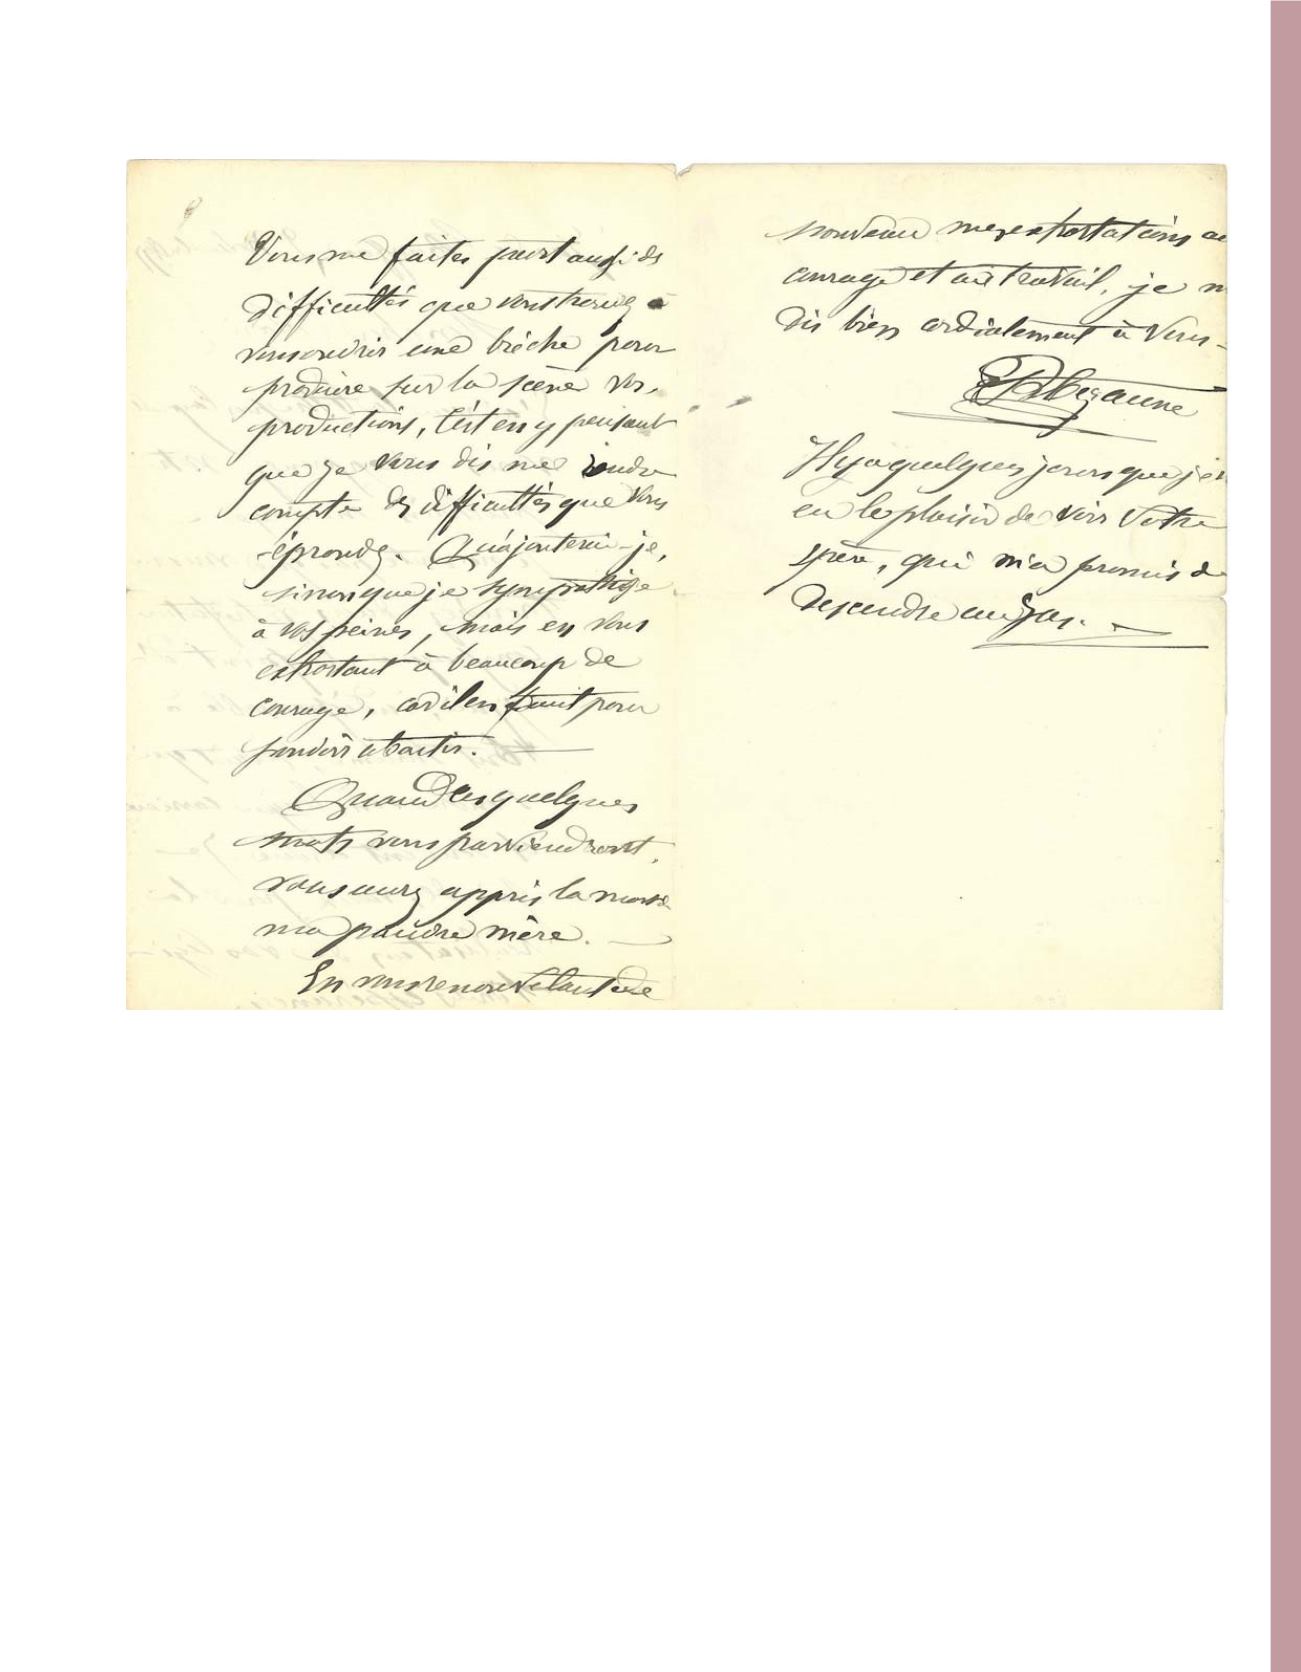 Vous me faites part aussi des
difficultés que vous trouvez à
vous ouvrir une brèche pour
produire sur la scène vos
productions, c'est en y pensant
que je vous dis me rendre
compte des difficultés que vous
éprouvez. Qu'ajouterai-je,
sinon que je sympathise
à vos peines, mais en vous
exhortant à beaucoup de
courage, car il en faut pour
pouvoir aboutir.
Quand ces quelques
mots vous parviendront,
vous aurez appris la mort de
ma pauvre mère.
En vous renouvelant de
nouveau mes exhortations au
courage et au travail, je m
dis bien cordialement à vous
Il y a quelques jours que j'ai
eu le plaisir de voir votre
père, qui m'a promis de
descendre au